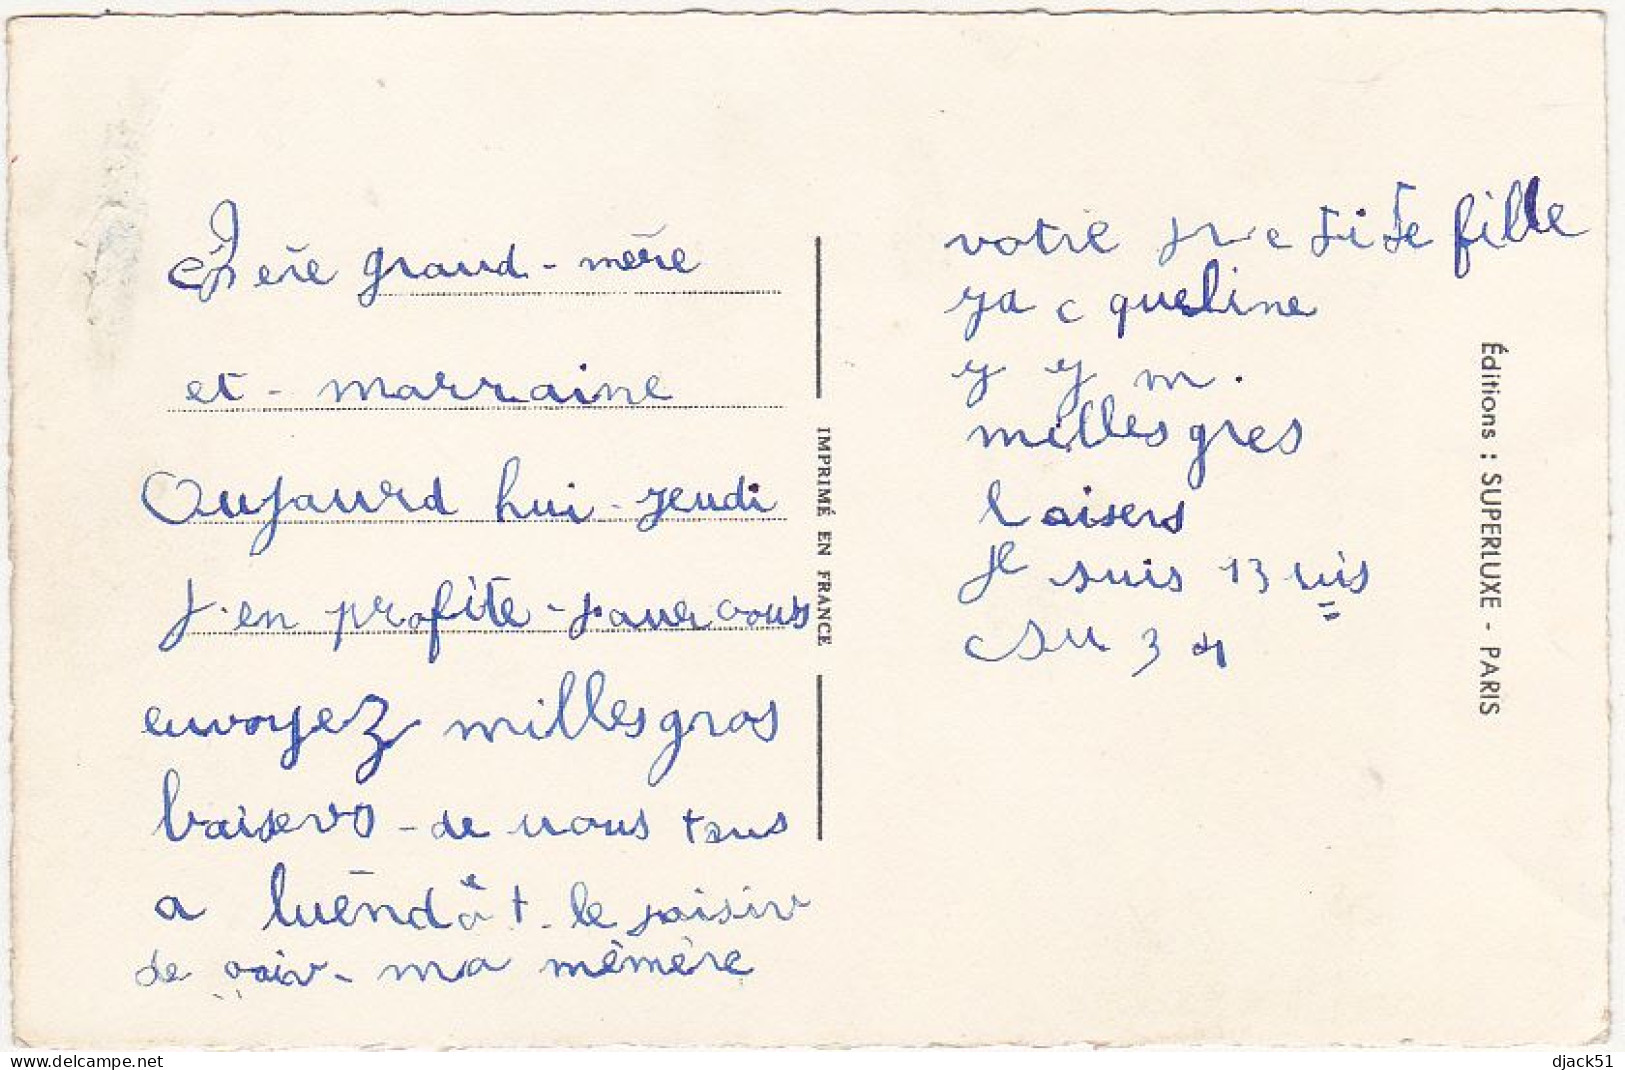 chere grand-mère
et - marraine
Aujourd hui - jeudi
j-en profite - pour vous
envoyez milles gros
baisers - de nous tous
a - le
de voir - ma mémère
votre petite fille
Jacqueline
y y m.
milles gres
baisers
je suis 13
su 3
IMPRIMÉ EN FRANCE
Éditions : SUPERLUXE - PARIS
delcampe.net
djack51